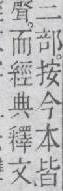 二部按今本皆
聲而經典釋文